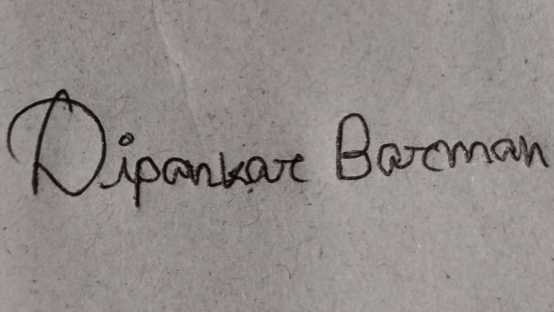 Dipankar Barman